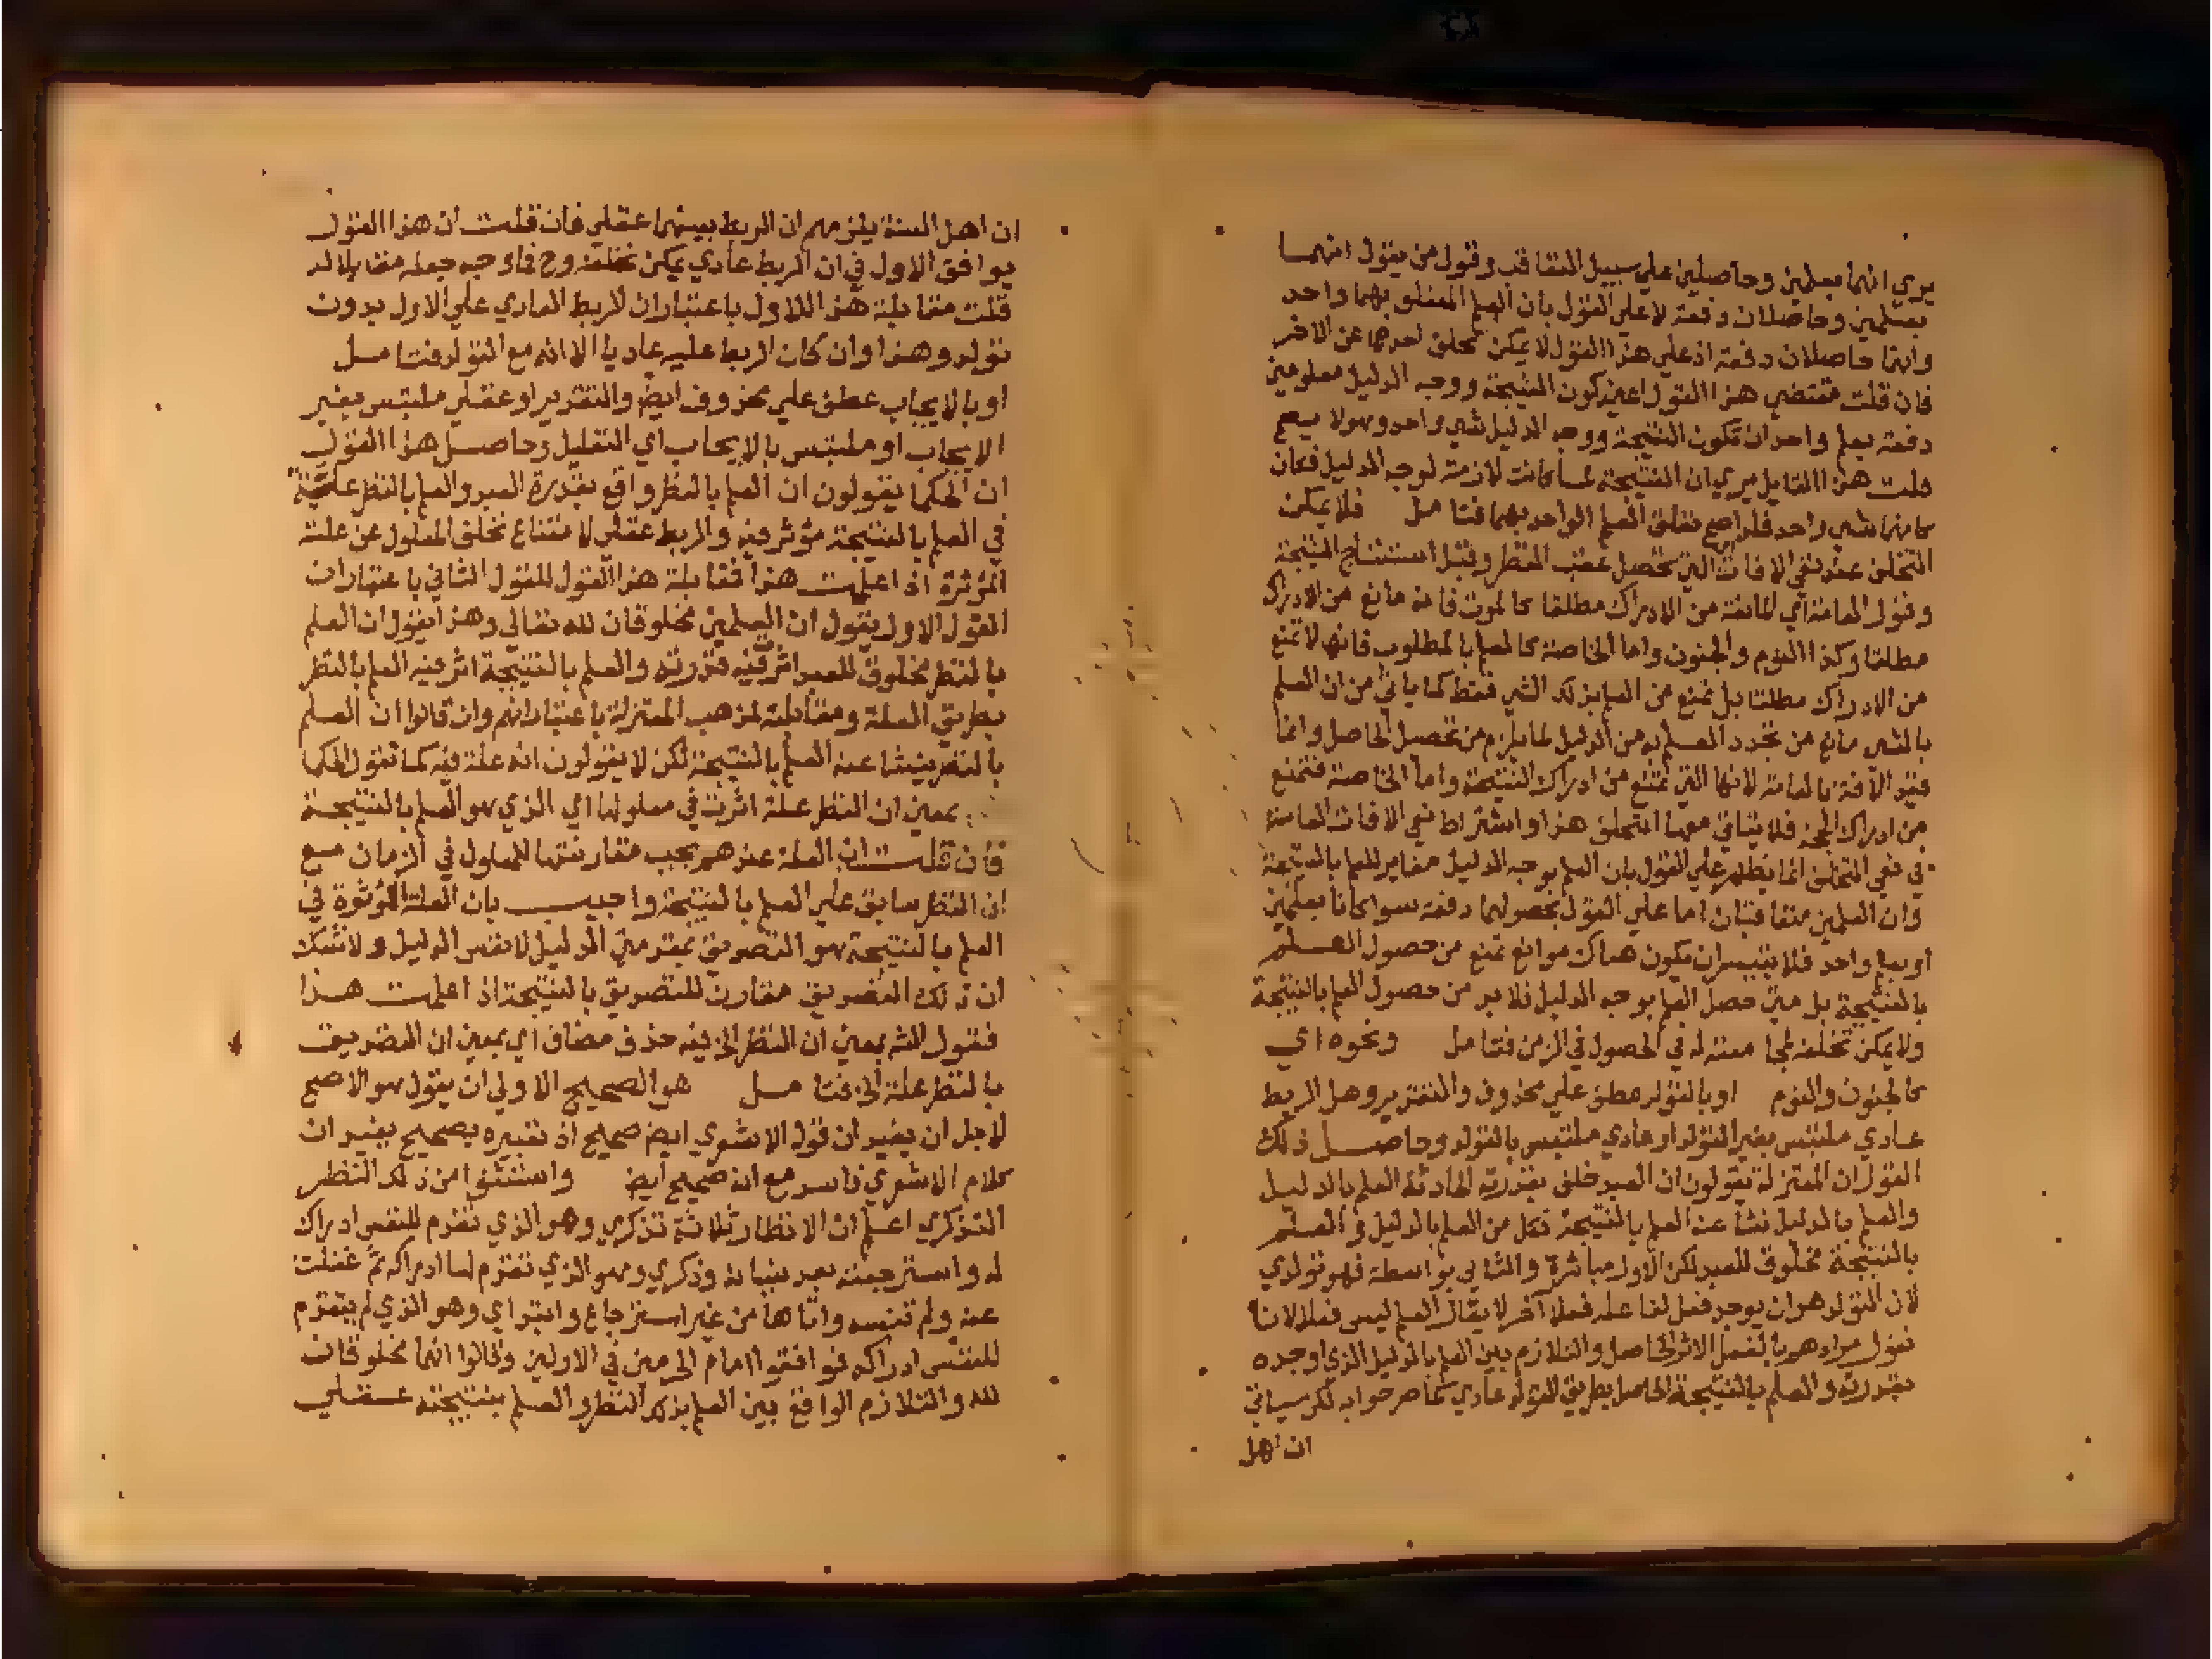 يري انهما بعلمين وحاصلين علي سبيل التعاقب وقول من يقول انهما
بعلمين وحاصلان دفعة لا علي القول بان العلم المتعلق بهما واحد
وانهما حاصلان دفعة اذ علي هذا القول لا يمكن تخلف احدهما عن الاخر
فان قلت مقتضي هذا القول اعني كون النتيجة ووجه الدليل معلومين
دفعة بعلم واحد ان تكون النتيجة ووجه الدليل شي واحد وهو لا يصح
قلت هذا القايل يري ان النتيجة لما كانت لازمة لوجه الدليل فكان
كانهما شي واحد فلذا صح تعلق العلم الواحد بهما فتامل فلا يمكن
التخلف عند نفي الافات التي تحصل عقب النظر وقبل استنتاج النتيجة
وقول العامة اي المانعة من الادراك مطلقا كالموت فانه مانع من الادراك
مطلقا وكذا النوم والجنون واما الخاصة كالعلم بالمطلوب فانها لا تمنع
من الادراك مطلقا بل تمنع من العلم بذلك الشي فقط كما ياتي من ان العلم
بالشي مانع من تجدد العلم به من الدليل لما يلزم من تحصيل الحاصل وانما
قيد الافة بالعامة لانها التي تمنع من ادراك النتيجة واما الخاصة فتمنع
من ادراك فلا يتاتي معها التخلف هذا واشتراط نفي الافات العامة
في نفي التخلف انما يظهر علي القول بان العلم بوجه الدليل مغاير للعلم بالنتيجة
وان العلمين متعاقبان اما علي القول بحصولهما دفعة سوا كانا بعلمين
او بعلم واحد فلا يتيسر ان يكون هناك موانع تمنع من حصول العلم
بالنتيجة بل متي حصل العلم بوجه الدليل فلا بد من حصول العلم بالنتيجة
ولا يمكن تخلفه لمعيته له في الحصول في الزمن فتامل ونحوه اي
كالجنون والنوم او بالتولد عطف علي محذوف والتقدير وهل الربط
عادي ملتبس بغير التولد او عادي ملتبس بالتولد وحاصل ذلك
القول ان المعتزلة يقولون ان العبد خلق بقدرته الحادثة العلم بالدليل
والعلم بالدليل نشا عنه العلم بالنتيجة فكل من العلم بالدليل والعلم
بالنتيجة مخلوق للعبد لكن الاول مباشرة والثاني بواسطة فهو تولدي
لان التولد هو ان يوجد فعل لفاعله فعلا آخر لا يقال العلم ليس فعلا لانا
نقول مرادهم بالفعل الاثر الحاصل والتلازم بين العلم بالدليل الذي اوجده
بقدرته والعلم بالنتيجة الحاصل بطريق التولد عادي لكن سياتي
ان اهل
ان اهل السنة يلزمهم ان الربط بينهما عقلي فان قلت ان هذا القول
يوافق الاول في ان الربط عادي يمكن تخلفه وح فما وجه جعله مقابلا له
قلت مقابلة هذا للاول باعتبار ان الربط العادي علي الاول بدون
تولد وهذا وان كان الربط عليه عاديا الا انه مع التولد فتامل
او بالايجاب عطف علي محذوف ايض والتقدير او عقلي ملتبس بغير
الايجاب او ملتبس بالايجاب اي التعليل وحاصل هذا القول
ان الحكما يقولون ان العلم بالنظر واقع بقدرة العبد والعلم بالنظر علة
في العلم بالنتيجة مؤثر فيه والربط عقلي لامتناع تخلف المعلول عن علته
المؤثرة اذا علمت هذا فمقابلة هذا القول للقول الثاني باعتبار ان
القول الاول يقول ان العلمين مخلوقان لله تعالي وهذا يقول ان العلم
بالنظر مخلوق للعبد اثر فيه قدرته والعلم بالنتيجة اثر فيه العلم بالنظر
بطريق العلة ومقابلته لمذهب المعتزلة باعتبار انهم وان قالوا ان العلم
بالنظر ينشا عنه العلم بالنتيجة لكن لا يقولون انه علة فيه كما تقول الحكما
بمعني ان النظر علة اثرت في معلولها اي الذي هو العلم بالنتيجة
فان قلت ان العلة عندهم يجب مقارنتها للمعلول في الزمان مع
ان النظر سابق علي العلم بالنتيجة واجيب بان العلة المؤثرة في
العلم بالنتيجة هو التصديق بمقدمتي الدليل لا نفس الدليل ولا شك
ان ذلك التصديق مقارن للتصديق بالنتيجة اذا علمت هذا
فقول الش بمعني ان النظر الخ فيه حذف مضاف اي بمعني ان التصديق
بالنظر علة الخ فتامل هو الصحيح الاولي ان يقول هو الاصح
لاجل ان يفيد ان قول الاشعري ايض صحيح اذ تعبيره بصحيح يفيد ان
كلام الاشعري فاسد مع انه صحيح ايض واستثنوا من ذلك النظر
التذكري اعلم ان الانظار ثلاثة تذكري وهو الذي تقدم للنفس ادراك
له واسترجعته بعد نسيانه وذكري وهو الذي تقدم لها ادراكه ثم غفلت
عنه ولم تنسه واتاها من غير استرجاع وابتداي وهو الذي لم يتقدم
للنفس ادراكه فوافقوا امام الحرمين في الاولين وقالوا انهما مخلوقان
لله والتلازم الواقع بين العلم بذلك النظر والعلم بنتيجته عقلي